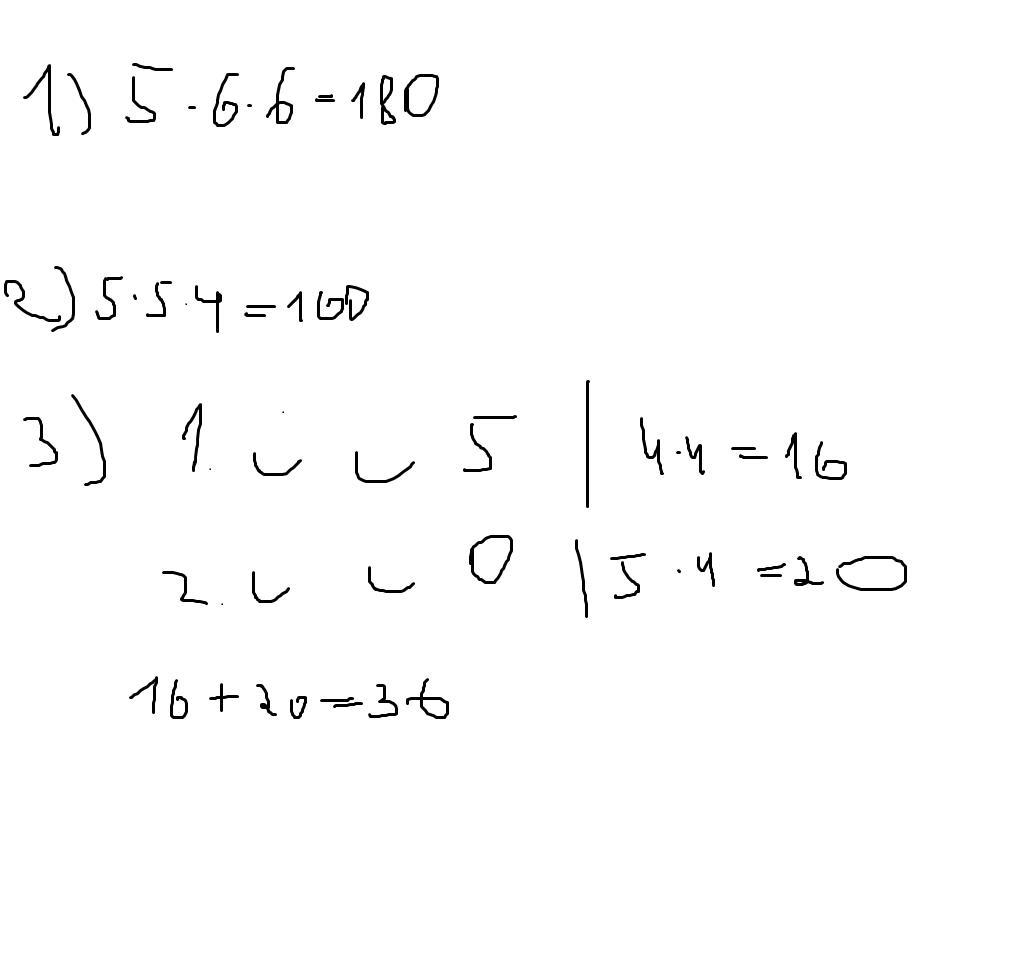 1) 5 · 6 · 6 = 180
2) 5 · 5 · 4 = 100
3) 1. _ _ 5 | 4 · 4 = 16
2. _ _ 0 | 5 · 4 = 20
16 + 20 = 36